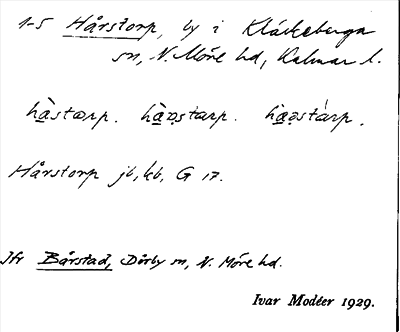 1-5 Hårstorp, by i Kläckeberga
sn, N. Möre hd, Kalmar l.
Hårstorp jb, kb, G 17.
Jfr Bårstad, Dörby sn, N. Möre hd.
Ivar Modéer 1929.